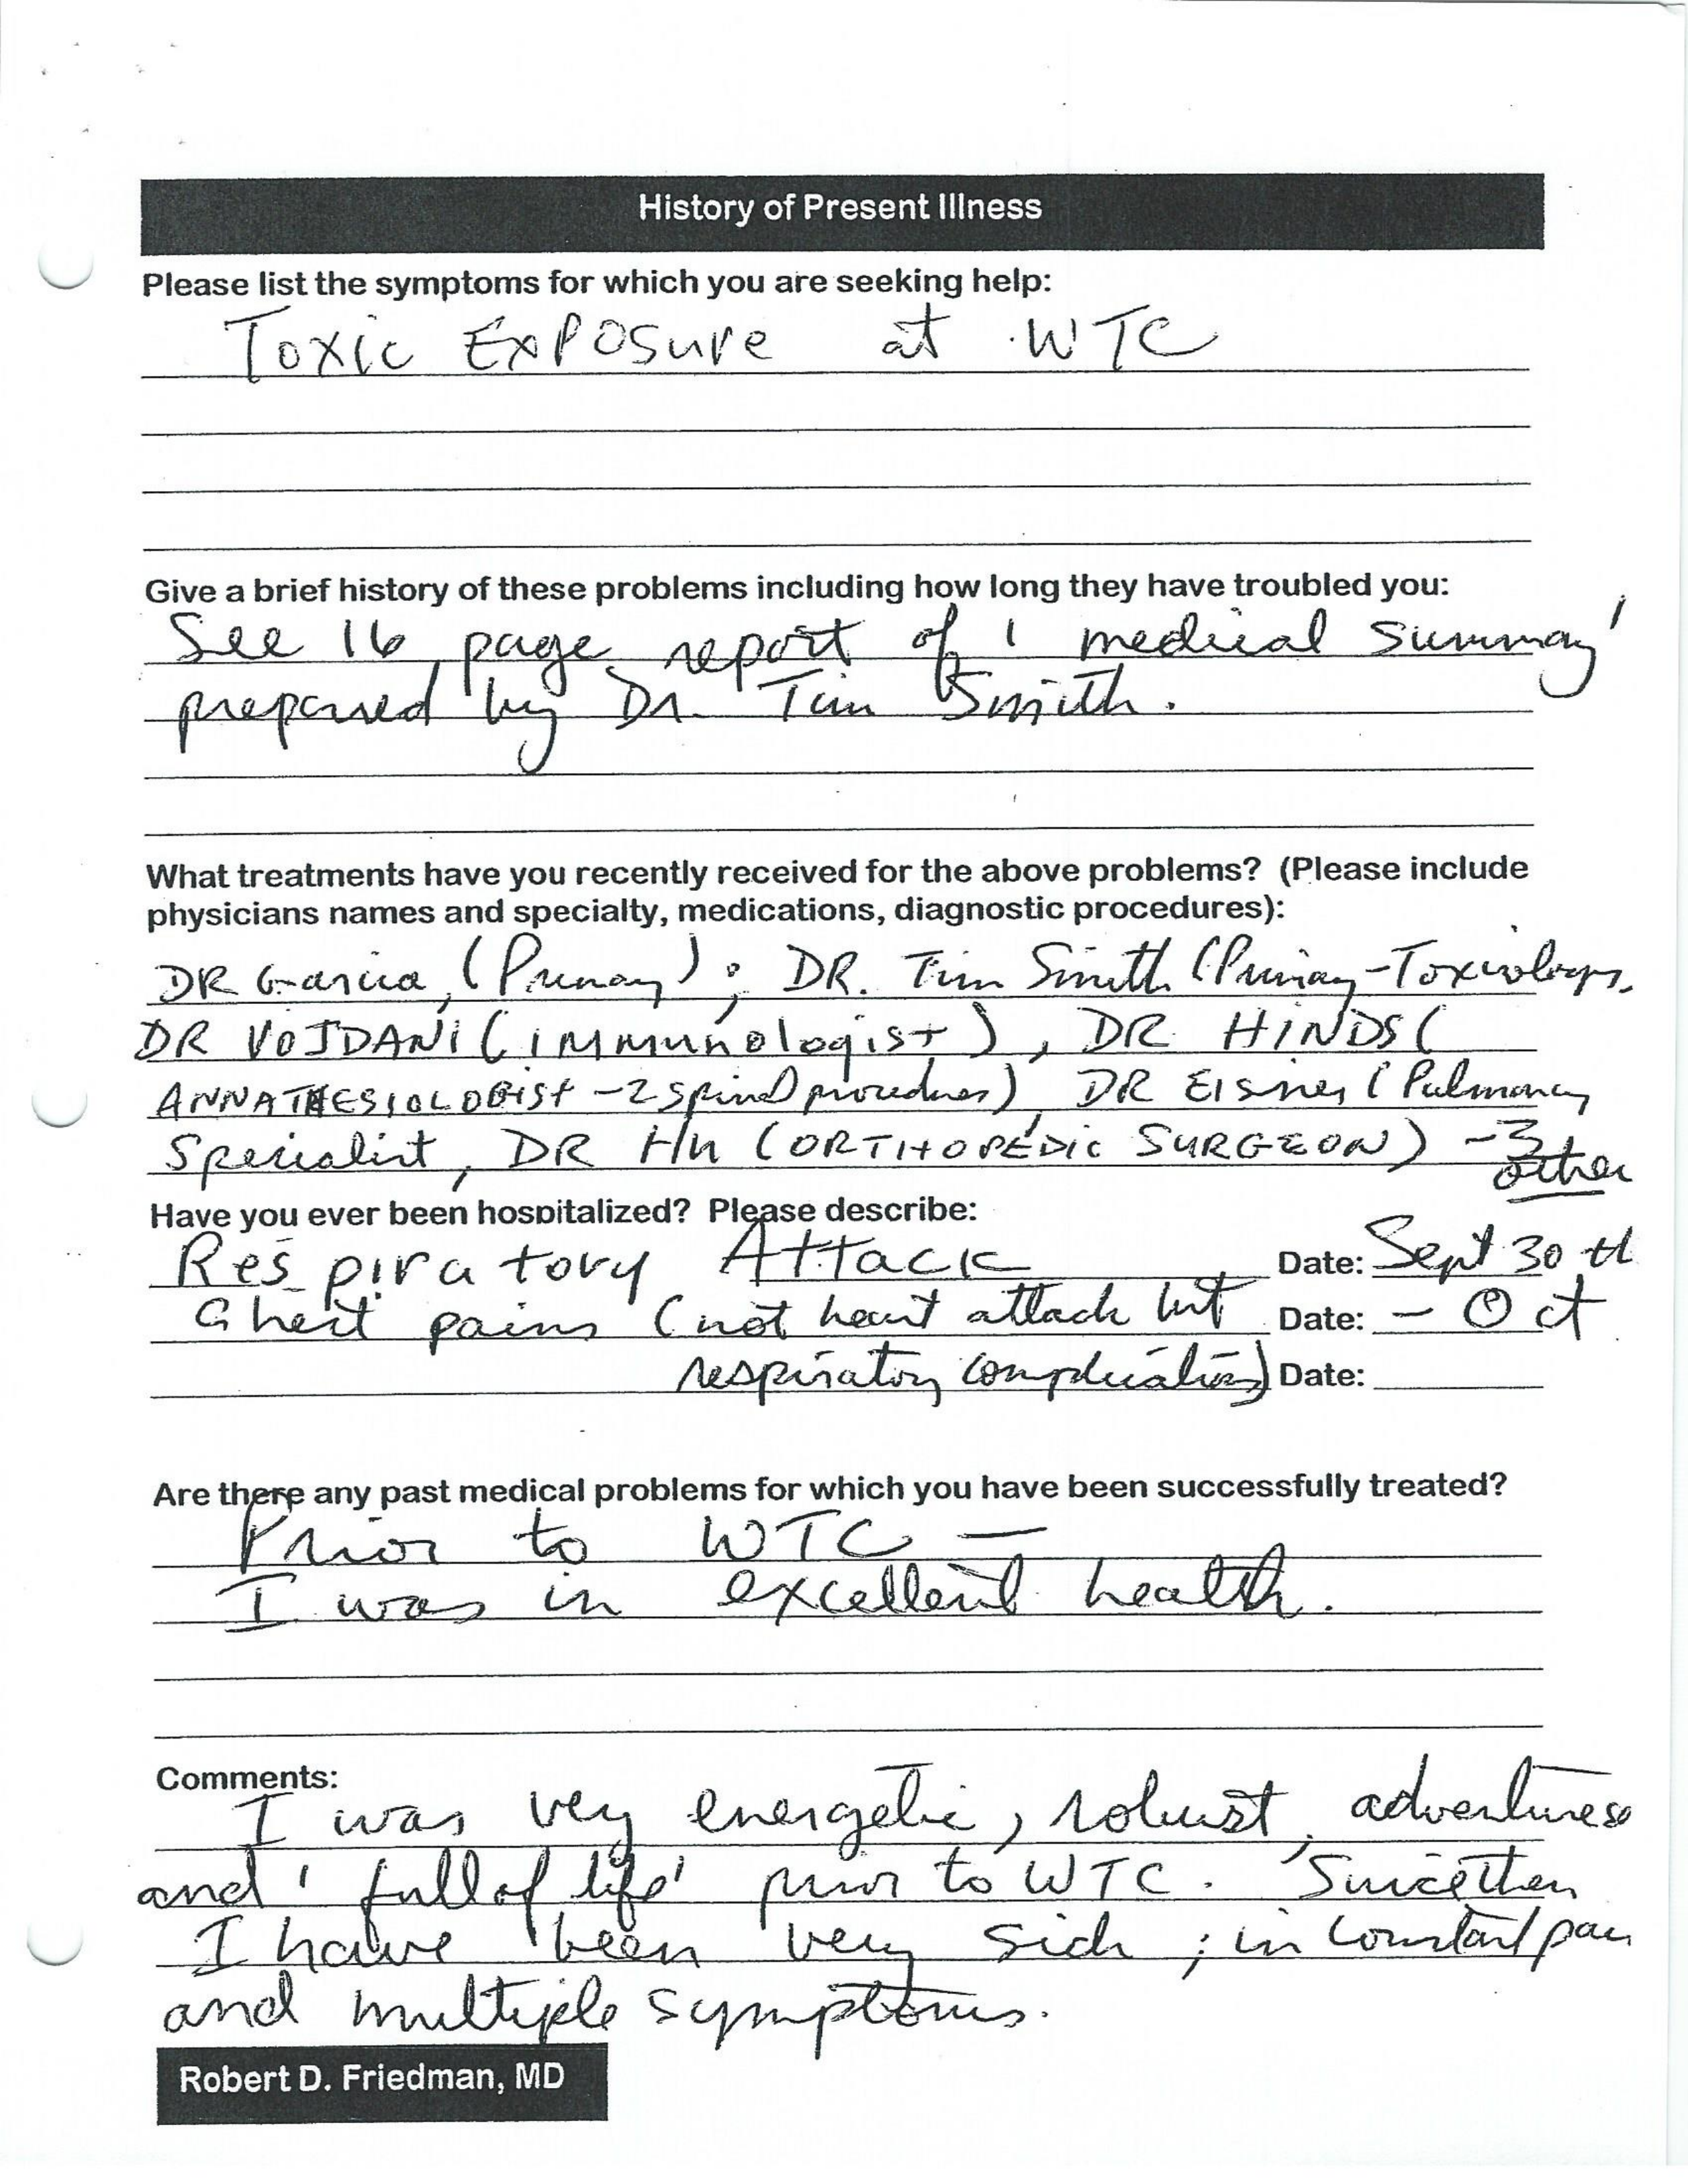 History of Present Illness
Please list the symptoms for which you are seeking help:
Toxic Exposure at WTC
Give a brief history of these problems including how long they have troubled you:
See 16 page report of ' medical summary'
prepared by Dr. Tim Smith.
What treatments have you recently received for the above problems? (Please include
physicians names and specialty, medications, diagnostic procedures):
DR Garcia, (Primary); DR. Tim Smith (Primary-Toxicology,
DR VOJDANI (immunologist), DR HINDS (
ANNATHESIOLOGist - 2 spinal procedures), DR Eisner (Pulmonary
Specialist, DR (ORTHOPEDic SURGEON) - 3
other
Have you ever been hospitalized? Please describe:
Respiratory Attack Date: Sept 30 th
Chest pains (not heart attack but Date: - Oct
respiratory complications) Date:
Are there any past medical problems for which you have been successfully treated?
Prior to WTC -
I was in excellent health.
Comments:
I was very energetic, robust, adventureso
and 'full of life' prior to WTC. Since then
I have been very sick; in constant pain
and multiple symptoms.
Robert D. Friedman, MD